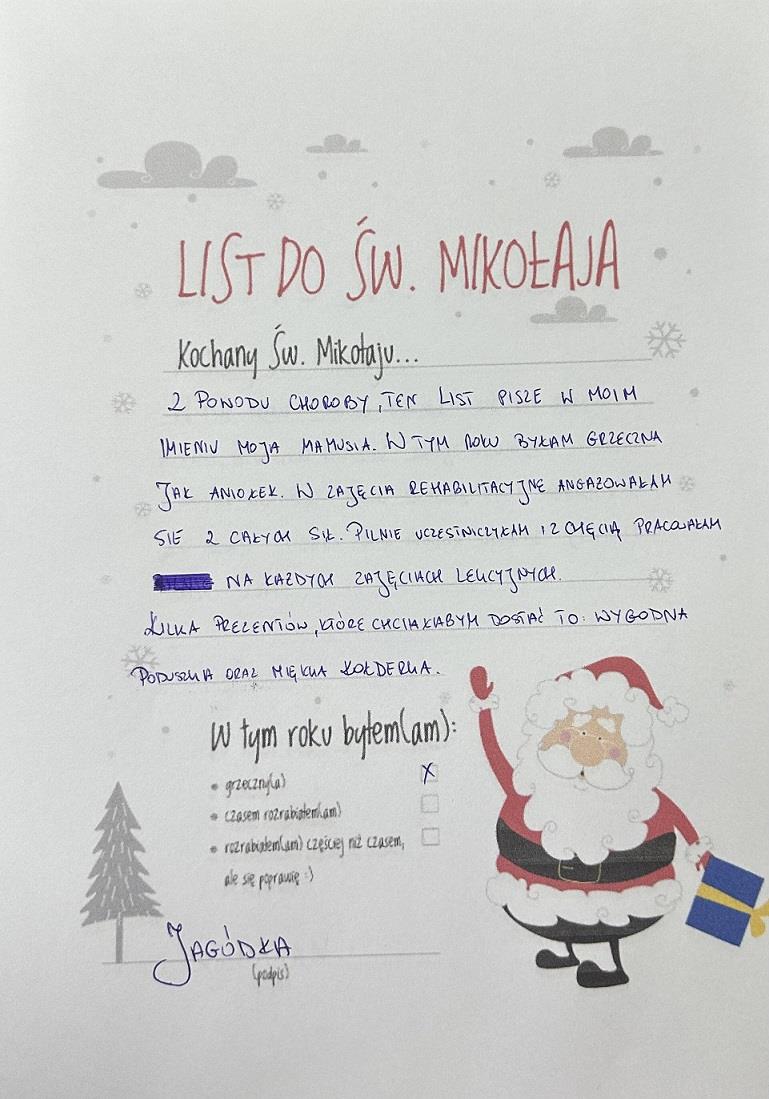 LIST DO ŚW. MIKOŁAJA
Kochany Św. Mikołaju...
Z POWODU CHOROBY, TEN LIST PISZE W MOIM
IMIENIU MOJA MAMUSIA. W TYM ROKU BYŁAM GRZECZNA
JAK ANIOŁEK. W ZAJĘCIA REHABILITACYJNE ANGAŻOWAŁAM
SIĘ Z CAŁYCH SIŁ. PILNIE UCZESTNICZYŁAM I Z CHĘCIĄ PRACOWAŁAM
NA KAŻDYCH ZAJĘCIACH LEKCYJNYCH.
KILKA PREZENTÓW, KTÓRE CHCIAŁABYM DOSTAĆ TO: WYGODNA
PODUSZKA ORAZ MIĘKKA KOŁDERKA.
W tym roku byłem(am):
• grzeczny(a) X
• czasem rozrabiałem(am)
• rozrabiałem(am) częściej niż czasem,
ale się poprawię :)
JAGÓDKA
(podpis)